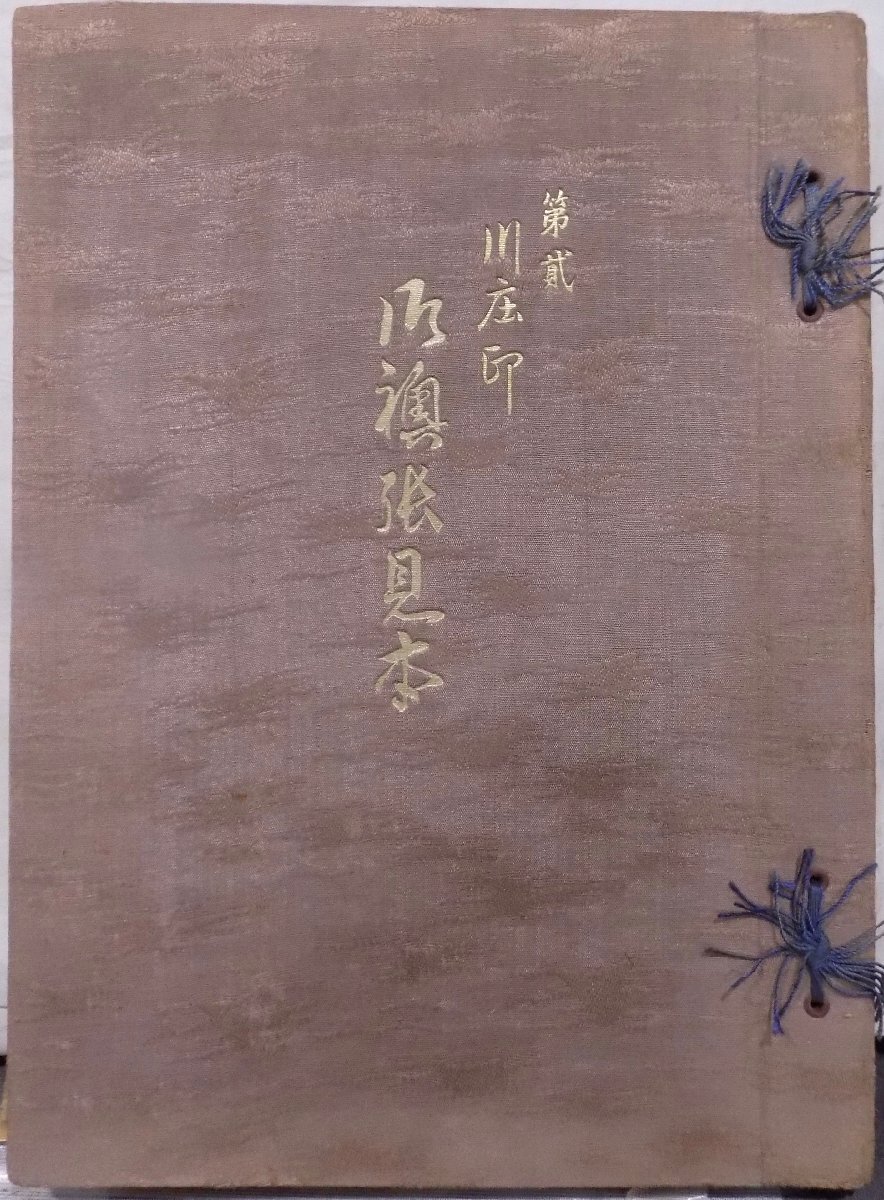 第貳
川庄印
御襖張見本